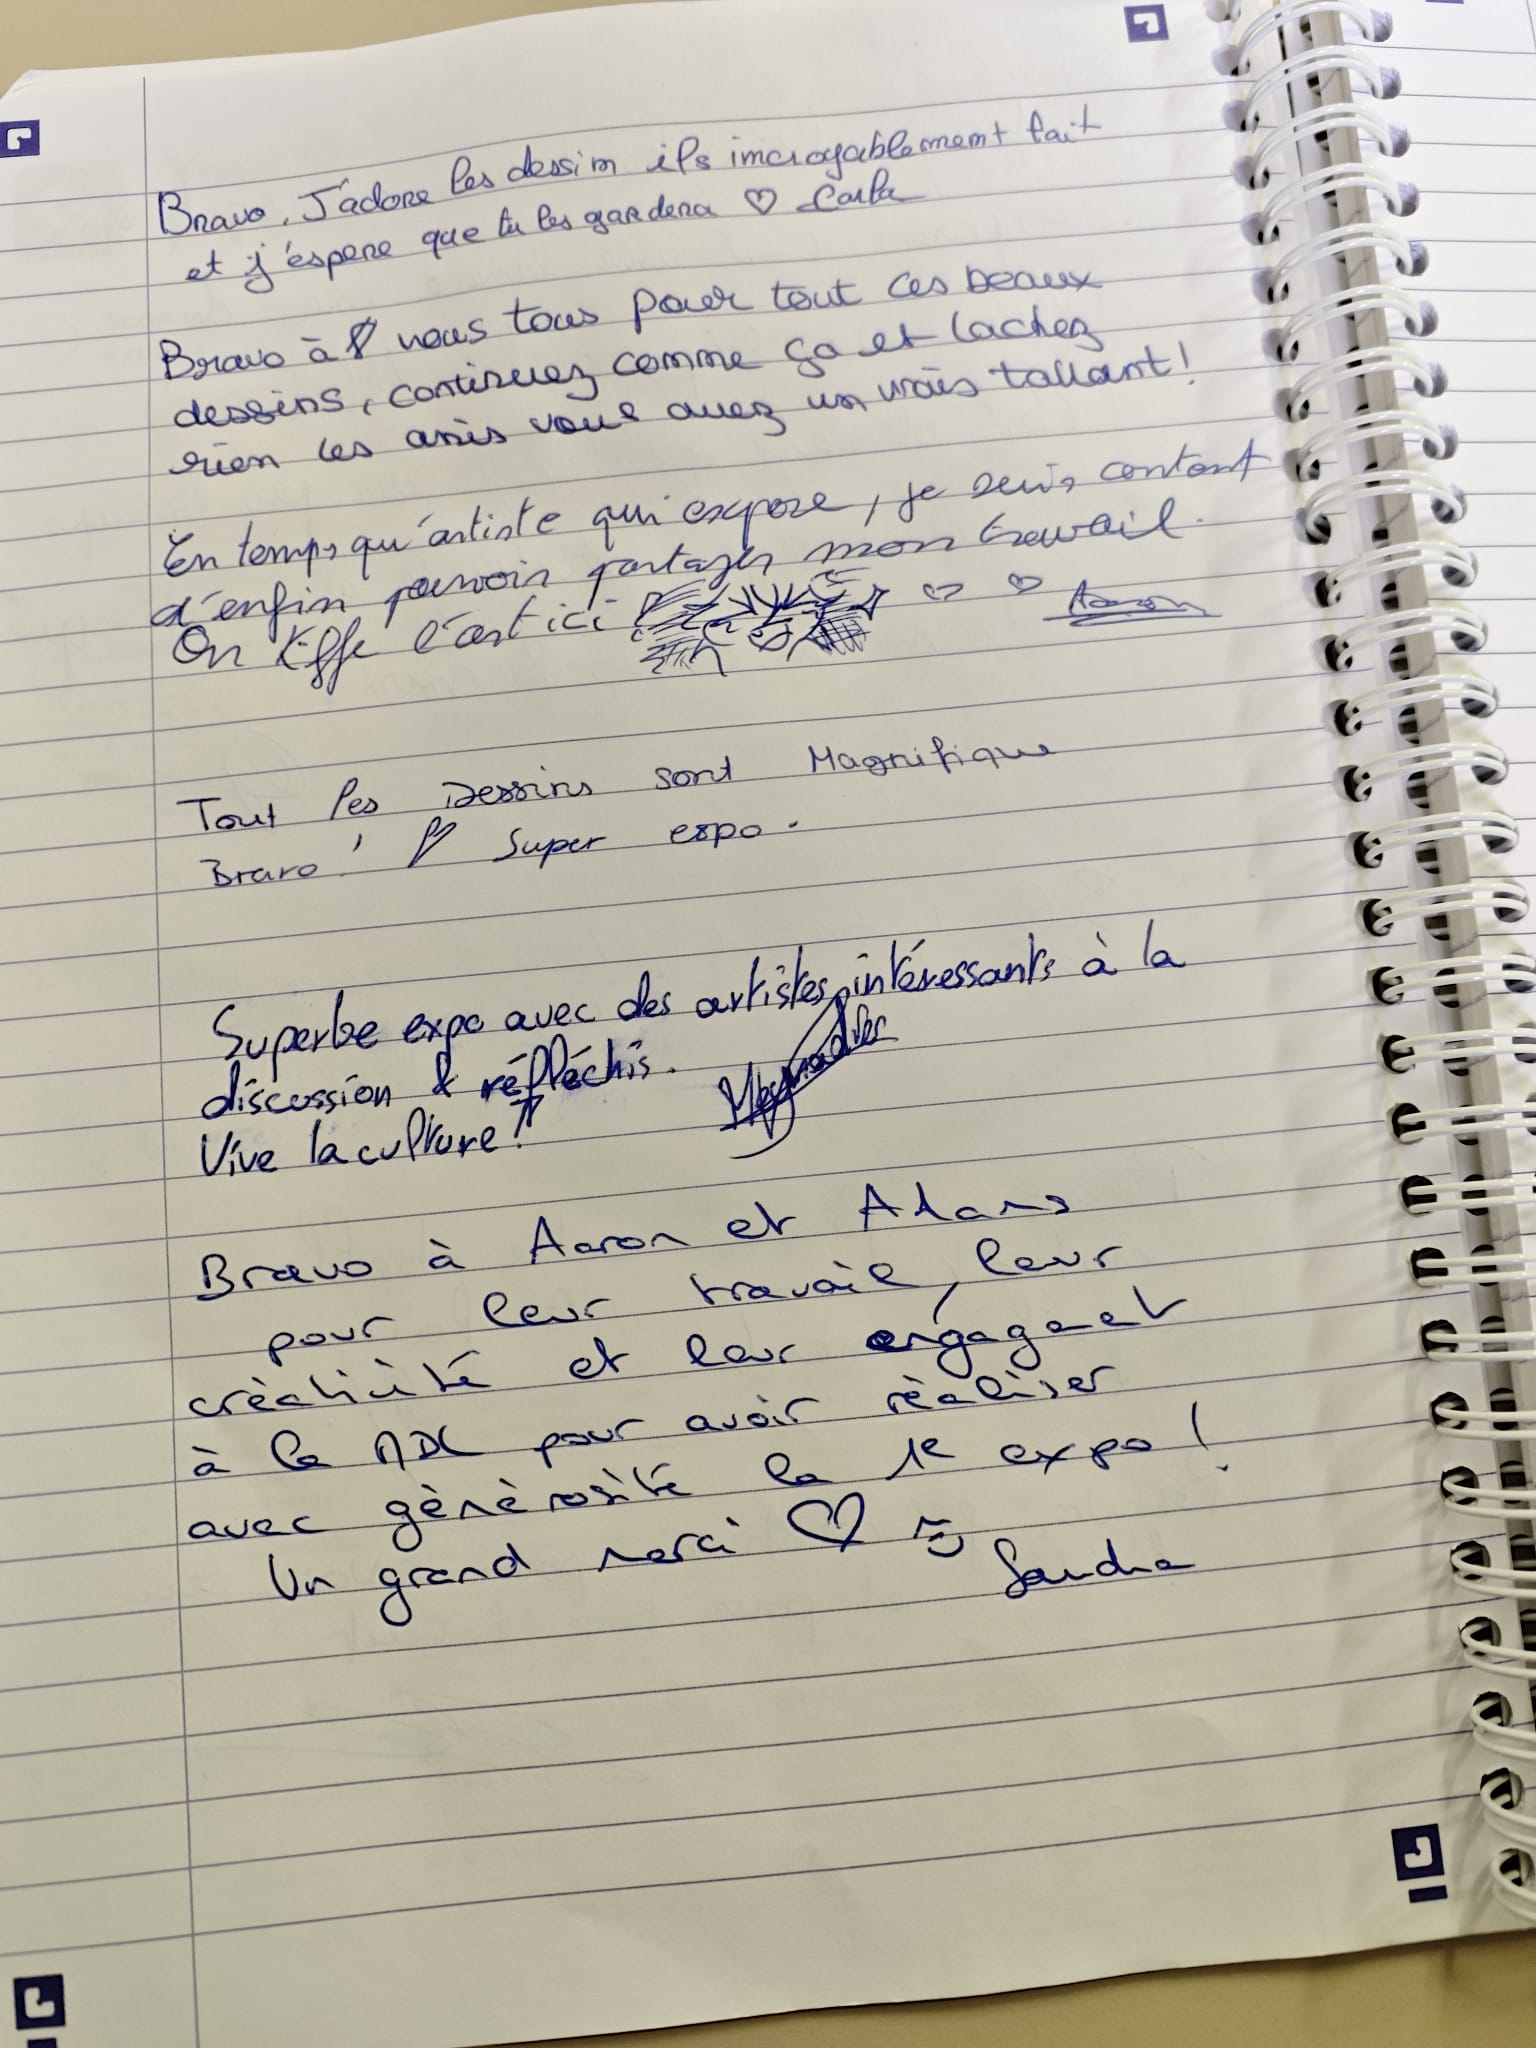 Bravo, J'adore les dessin ils incroyablement fait
et j'espere que tu les gardera ♡ Carla
Bravo à nous tous pour tout ces beaux
dessins, continuez comme ça et lachez
rien les amis vous avez un vrais tallant!
En temps qu'artiste qui expose, je suis content
d'enfin pouvoir partager mon travail.
On Kiffe l'art ici ! ♡ ♡ Aaron
Tout les Dessins sont Magnifique
Bravo! ♡ Super expo.
Superbe expo avec des artistes intéressants à la
discussion & réfléchis.
Vive la culture!
Bravo à Aaron et Adams
pour leur travail, leur
créativité et leur engagment
à la MDL pour avoir réaliser
avec générosité la 1e expo!
Un grand merci ♡ Sandra